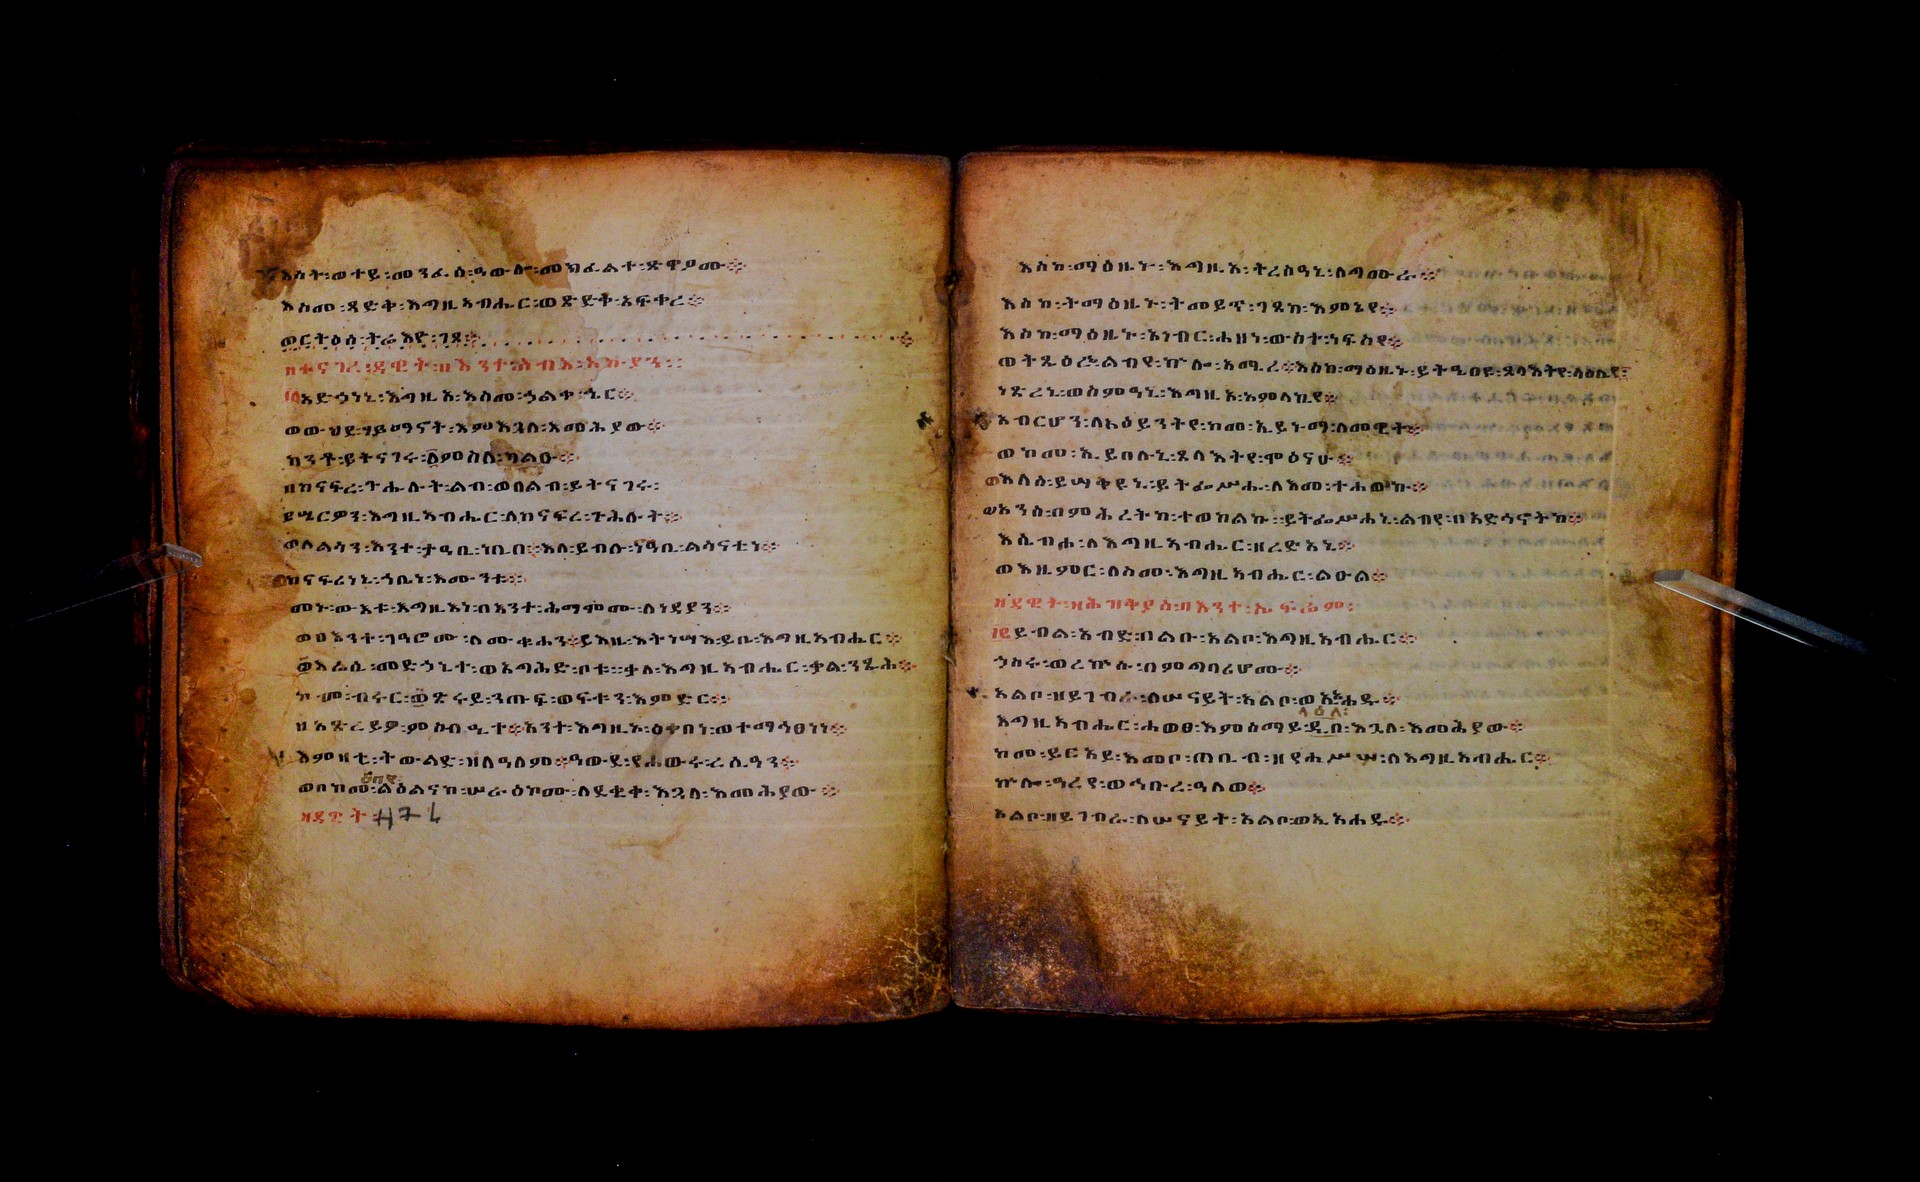 እሳት፡ወተይ፡መንፈሰ፡ዓውሎ፡መክፈልተ፡ጽዋዖሙ፨
እስመ፡ጻድቅ፡እግዚአብሔር፡ወጽድቅ፡አፍቀረ፨
ወርትዕሰ፡ትሬእዮ፡ገጹ፨
ዘተናገረ፡ዳዊት፡በእንተ፡አኩያን፡፡
፲፩አድኅነኒ፡እግዚኦ፡እስመ፡ኃልቀ፡ኄር፨
ወውህደ፡ሃይማኖት፡እምእጓለ፡እመሕያው፨
ከንቶ፡ይትናገሩ፡፩ምስለ፡ካልዑ፨
በከናፍረ፡ጕሕሉት፡ልብ፡ወበልብ፡ይትናገሩ፡
ይሤርዎን፡እግዚአብሔር፡ለከናፍረ፡ጕሕሉት፨
ወለልሳን፡እንተ፡ታዐቢ፡ነቢበ፨እለ፡ይብሉ፡ናዐቢ፡ልሳናቲነ፨
ከናፍሪነኒ፡ኀቤነ፡እሙንቱ፨
መኑ፡ውእቱ፡እግዚእነ፡በእንተ፡ሕማሞሙ፡ለነዳያን፨
ወበእንተ፡ገዓሮሙ፡ለሙቁሓን፨ይእዜ፡እትነሣእ፡ይቤ፡እግዚአብሔር፨
ወእሬሲ፡መድኃኒተ፡ወአግሕድ፡ቦቱ፡፡ቃለ፡እግዚአብሔር፡ቃል፡ንጹሕ፨
ከመ፡ብሩር፡ወጽሩይ፡ንጡፍ፡ወፍቱን፡እምድር፨
ዘአጽረይዎ፡ምስብዒተ፨አንተ፡እግዚኦ፡ዕቀበነ፡ወተማኅፀነነ፨
እምዛቲ፡ትውልድ፡ዘለዓለም፨ዓውደ፡የሐውሩ፡ረሲዓን፨
ወበከመ፡ልዕልናከ፡ሠራዕኮሙ፡ለደቂቀ፡እጓለ፡እመሕያው፨
ዘዳዊት፡
እስከ፡ማዕዜኑ፡እግዚኦ፡ትረስዓኒ፡ለግሙራ፨
እስከ፡ትማዕዜኑ፡ትመይጥ፡ገጸከ፡እምኔየ፨
እስከ፡ማዕዜኑ፡እነብር፡ሐዘነ፡ውስተ፡ነፍስየ፨
ወትጼዕረኒ፡ልብየ፡ኵሎ፡አሚረ፨እስከ፡ማዕዜኑ፡ይትዔበዩ፡ጸላእትየ፡ላዕሌየ፡
ነጽረኒ፡ወስምዓኒ፡እግዚኦ፡አምላኪየ፨
አብርሆን፡ለአዕይንትየ፡ከመ፡ኢይኑማ፡ለመዊት፨
ወከመ፡ኢይበሉኒ፡ጸላእትየ፡ሞዕናሁ፨
ወእለሰ፡ይሣቅዩኒ፡ይትፌሥሑ፡ለእመ፡ተሐውኩ፨
ወአንሰ፡በምሕረትከ፡ተወከልኩ፡፡ይትፌሥሐኒ፡ልብየ፡በአድኅኖትከ፨
እሴብሖ፡ለእግዚአብሔር፡ዘረድአኒ፨
ወእዜምር፡ለስመ፡እግዚአብሔር፡ልዑል፨
ዘዳዊት፡ዘሕዝቅያስ፡በእንተ፡ኤፍሬም፡
፲፫ይብል፡አብድ፡በልቡ፡አልቦ፡እግዚአብሔር፨
ኃስሩ፡ወረኵሱ፡በምግባሪሆሙ፨
አልቦ፡ዘይገብራ፡ለሠናይት፡አልቦ፡ወኢአሐዱ፨
ላዕለ፡
እግዚአብሔር፡ሐወፀ፡እምሰማይ፡ዲበ፡እጓለ፡እመሕያው፨
ከመ፡ይርአይ፡እመቦ፡ጠቢብ፡ዘየሐሥሦ፡ለእግዚአብሔር፨
ኵሉ፡ዓረየ፡ወኅቡረ፡ዓለወ፨
አልቦ፡ዘይገብራ፡ለሠናይት፡አልቦ፡ወኢአሐዱ፨